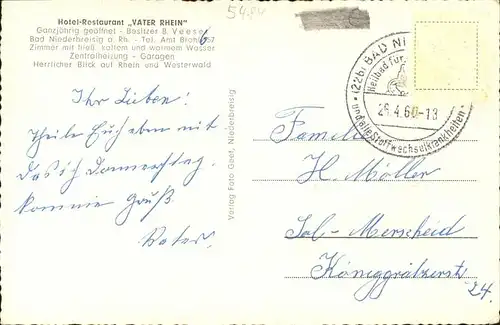 54.04
Hotel-Restaurant „VATER RHEIN"
Ganzjährig geöffnet - Besitzer B. Vieese
Bad Niederbreisig a. Rh. - Tel. Amt Brohl 657
Zimmer mit fließ. kaltem und warmem Wasser
Zentralheizung - Garagen
Herrlicher Blick auf Rhein und Westerwald
(22b) BAD NI
Heilbad für
25.4.60-13
und alle Stoffwechselkrankheiten
Ihr Lieben!
Theile Euch eben mit
das ich Donnerstag
komme Gruß
Vater
Verlag Foto Geef, Niederbreisig
Familie
H. Möller
Sol-Merscheid
Königgrätzerstr
24